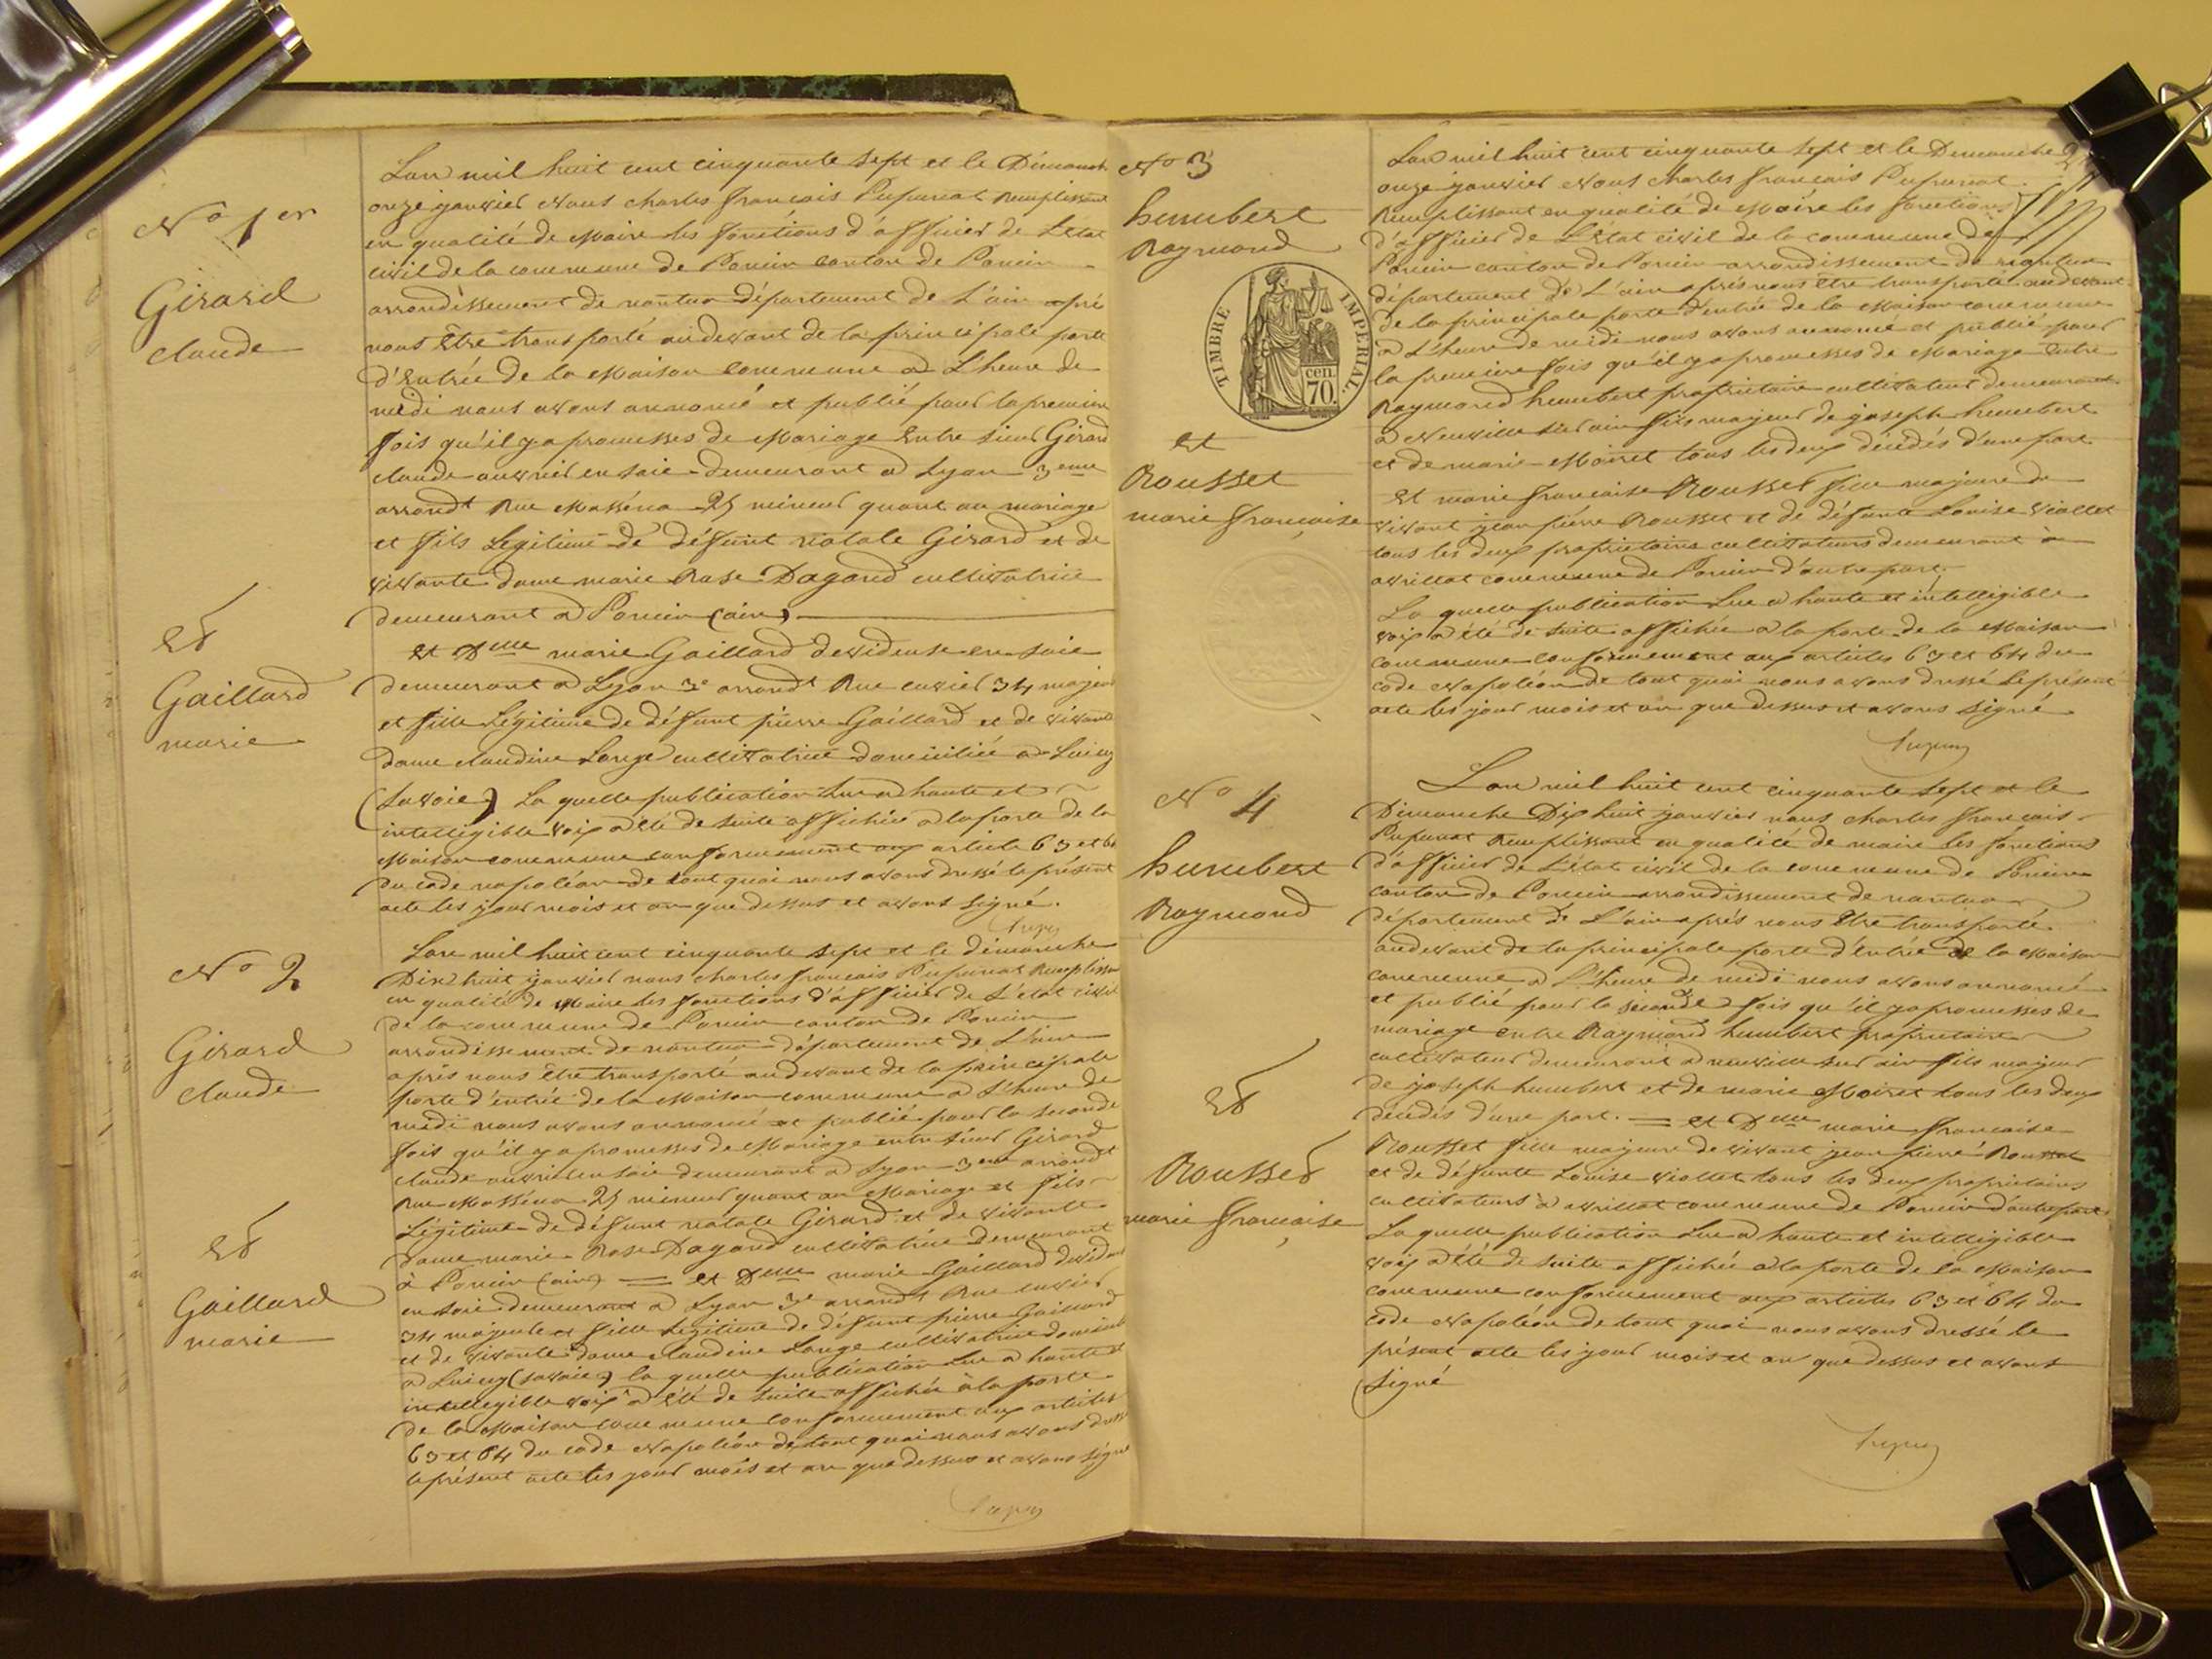 No 1er
Girard
claude
et
Gaillard
marie
Lan mil huit cent cinquante sept et le Dimanch
onze janvier Nous charles francois Pupunat Remplissant
en qualité de Maire les fonctions d'officier de L'etat
civil de la commune de Poncin canton de Poncin
arrondissement de nantua département de L'ain apré
nous être transporté au devant de la principale porte
d'Entrée de la Maison commune a L'heure de
midi nous avons annoncé et publié pour la premiere
fois qu'il y a promesses de Mariage Entre sieur Girard
claude ouvrier en soie demeurant a Lyon 3eme
arrondt Rue Masséna 25 mineur quant au mariage
et fils Legitime de défunt natale Girard et de
vivante dame marie Rose Dagand cultivatrice
demeurant a Poncin (ain)
et Dlle marie Gaillard devideuse en soie
demeurant a Lyon 3e arrondt Rue cuvier 34 majeur
et fille Légitime de défunt pierre Gaillard et de vivante
dame claudine Lange cultivatrice domiciliée a
(savoie) La quelle publication Lue a haute et
intelligible voix a été de suite affichée a la porte de la
Maison commune conformement aux article 63 et 64
du code napoléon de tout quoi nous avons dressé le présent
acte les jour mois et an que dessus et avons signé.
No 2
Girard
claude
et
Gaillard
marie
Lan mil huit cent cinquante sept et le dimanche
Dix huit janvier nous charles francois Pupunat Remplissan
en qualité de Maire les fonctions d'officier de L'etat civil
de la commune de Poncin canton de Poncin
arrondissement de nantua département de L'ain
après nous être transporté au devant de la principale
porte d'entrée de la Maison commune a L'heure de
midi nous avons annoncé et publié pour la seconde
fois qu'il y a promesses de Mariage entre sieur Girard
claude ouvrier en soie demeurant a Lyon 3eme arrondt
Rue Masséna 25 mineur quant au Mariage et fils
Légitime de défunt natale Girard et de vivante
Dame marie Rose Dagand cultivatrice demeurant
à Poncin (ain) = et Dlle marie Gaillard
en soie demeurant a Lyon 3e arrondt Rue cuvier
34 majeure et fille Legitime de défunt pierre Gaillard
et de vivante dame claudine Lange cultivatrice
a (savoie) la quelle publication Lue a haute et
intelligible voix a été de suite affichée à la porte
de la Maison commune conformement aux articles
63 et 64 du code Napoléon de tout quoi nous avons
le présent acte les jour mois et an que dessus et avons signé
No 3
humbert
Raymond
TIMBRE IMPERIAL
70. cen.
et
Rousset
marie francoise
Lan mil huit cent cinquante sept et le Demanche
onze janvier Nous charles francois Pupunat
Remplissant en qualité de Maire les fonctions
d'officier de L'etat civil de la commune De
Poncin canton de Poncin arrondissement de nantua
département de L'ain après nous être transporté au devant
de la principale porte d'entrée de la Maison commune
a L'heure de midi nous avons annoncé et publié pour
la premiere fois qu'il y a promesses de Mariage Entre
Raymond humbert proprietaire cultivateur demeurant
a Neuville sur ain fils majeur de joseph humbert
et de marie Moiret tous les deux décédés d'une part
et marie francoise Rousset fille majeure de
vivant jean pierre Rousset et de défunte Louise Viollet
tous les deux proprietaires cultivateurs demeurant à
avrillat commune de Poncin d'autre part.
La quelle publication Lue a haute et intelligible
voix a été de suite affichée a la porte de la Maison
commune conformement aux articles 63 et 64 du
code Napoléon de tout quoi nous avons dressé le présent
acte les jour mois et an que dessus et avons signé
No 4
humbert
Raymond
et
Rousset
marie francoise
Lan mil huit cent cinquante sept et le
Dimanche Dix huit janvier nous charles francois
Pupunat Remplissant en qualité de maire les fonctions
d'officier de L'état civil de la commune de Poncin
canton de Poncin arrondissement de nantua
département de L'ain après nous être transporté
au devant de la principale porte d'entrée de la Maison
commune a L'heure de midi nous avons annoncé
et publié pour la seconde fois qu'il y a promesses de
mariage entre Raymond humbert proprietaire
cultivateur demeurant a neuville sur ain fils majeur
de joseph humbert et de marie Moiret tous les deux
décédés d'une part. = et Dlle marie francoise
Rousset fille majeure de vivant jean pierre Rousset
et de défunte Louise Viollet tous les deux proprietaires
cultivateurs a avrillat commune de Poncin d'autre part
La quelle publication Lue a haute et intelligible
voix a été de suite affichée a la porte de la Maison
commune conformement aux articles 63 et 64 du
code Napoléon de tout quoi nous avons dressé le
présent acte les jour mois et an que dessus et avons
signé